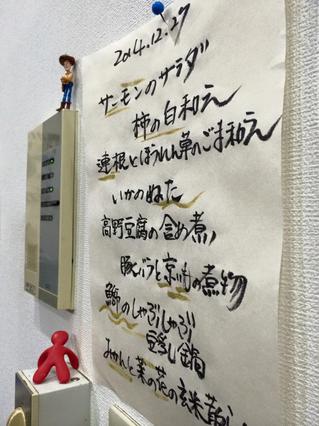 2014.12.27
サーモンのサラダ
柿の白和え
連根とほうれん草のごま和え
いかのぬた
高野豆腐の含め煮
豚バラと京いもの煮物
鰤のしゃぶしゃぶ
豆乳鍋
みかんと菜の花の玄米散らし